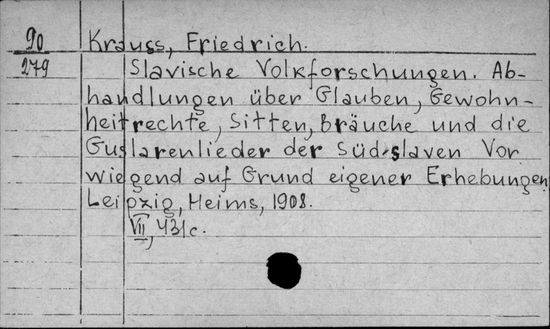 90 Krauss, Friedrich.
279 Slavische Volkforschungen. Ab-
handlungen über Glauben, Gewohn-
heitrechte, Sitten, Bräuche und die
Guslarenlieder der Süd-slaven Vor
wiegend auf Grund eigener Erhebungen
Leipzig, Heims, 1908.
VII, 431c.